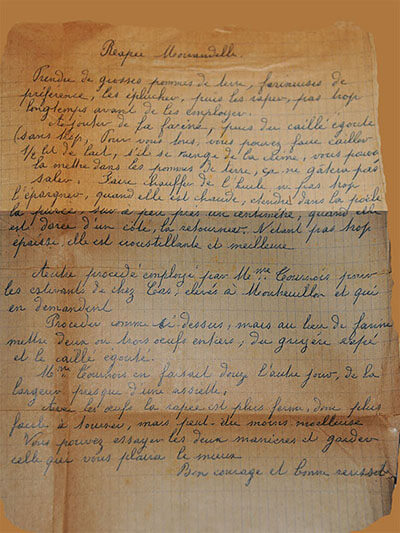 Rapée Morvandelle.
Prendre de grosses pommes de terre, farineuses de
préférence, les éplucher, puis les raper, pas trop
longtemps avant de les employer.
Ajouter de la farine, puis du caillé égoutté
(sans trop). Pour vous tous, vous pouvez faire cailler
1/2 lit de lait, s'il se mange de la crème, vous pouvez
la mettre dans les pommes de terre, ça ne gâtera pas
saler. Faire chauffer de l'huile ne pas trop
l'épargner, quand elle est chaude, étendre dans la poêle
la purée, sur à peu près un centimètre, quand elle
est dorée d'un côté, la retourner. N'étant pas trop
épaisse, elle est croustillante et meilleure.
Autre procédé employé par Mme Cournois pour
les estivants de chez elevés à Montreuillon et qui
en demandent
Procéder comme ci dessus, mais au lieu de farine
mettre deux ou trois oeufs entiers, du gruyère rapé
et le caillé égoutté.
Mme Cournois en faisait douze l'autre jour, de la
largeur presque d'une assiette.
Avec les oeufs la rapée est plus ferme, donc plus
facile à tourner, mais peut-être moins moelleuse
Vous pouvez essayer les deux manières et garder
celle qui vous plaira le mieux
Bon courage et bonne réussite